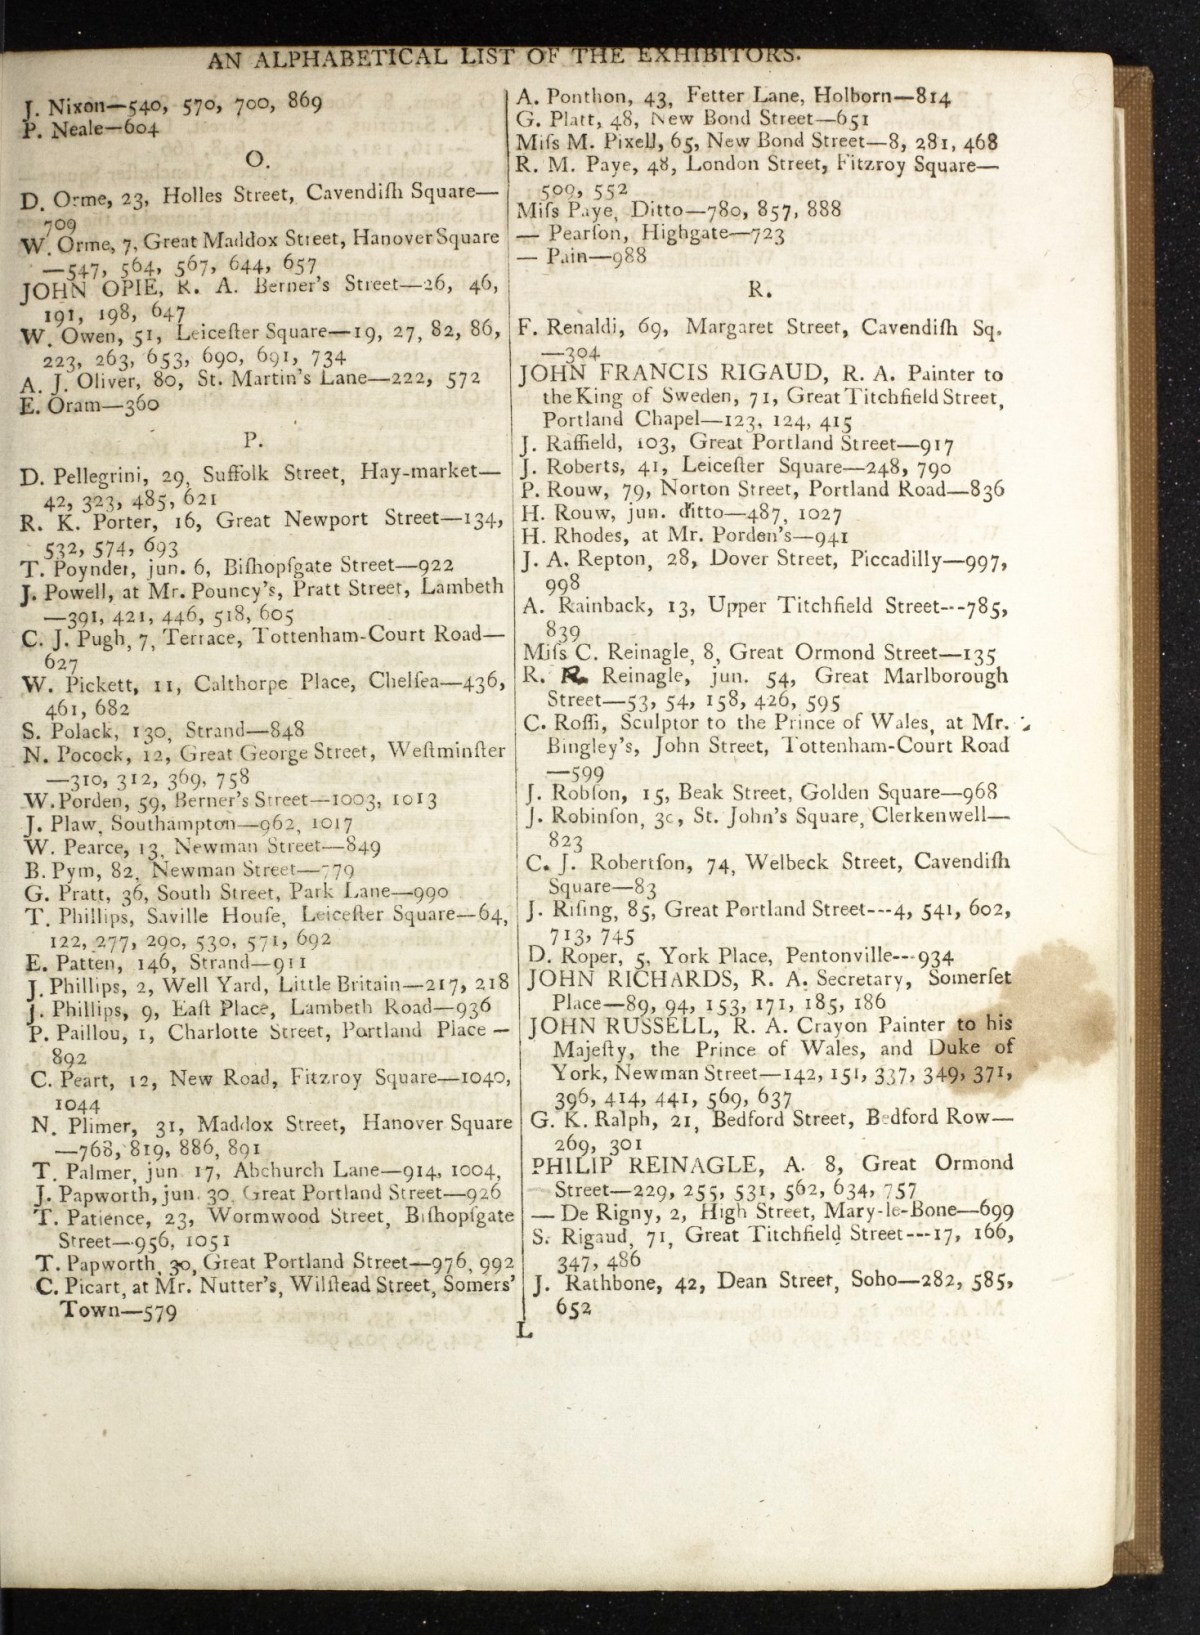 AN ALPHABETICAL LIST OF THE EXHIBITORS.
J. Nixon—540, 570, 700, 869
P. Neale—604
O.
D. Orme, 23, Holles Street, Cavendiſh Square—
709
W. Orme, 7, Great Maddox Street, Hanover Square
—547, 564, 567, 644, 657
JOHN OPIE, R. A. Berner's Street—26, 46,
191, 198, 647
W. Owen, 51, Leiceſter Square—19, 27, 82, 86,
223, 263, 653, 690, 691, 734
A. J. Oliver, 80, St. Martin's Lane—222, 572
E. Oram—360
P.
D. Pellegrini, 29, Suffolk Street, Hay-market—
42, 323, 485, 621
R. K. Porter, 16, Great Newport Street—134,
532, 574, 693
T. Poynder, jun. 6, Biſhopſgate Street—922
J. Powell, at Mr. Pouncy's, Pratt Street, Lambeth
—391, 421, 446, 518, 605
C. J. Pugh, 7, Terrace, Tottenham-Court Road—
627
W. Pickett, 11, Calthorpe Place, Chelſea—436,
461, 682
S. Polack, 130, Strand—848
N. Pocock, 12, Great George Street, Weſtminſter
—310, 312, 369, 758
W. Porden, 59, Berner's Street—1003, 1013
J. Plaw, Southampton—962, 1017
W. Pearce, 13, Newman Street—849
B. Pym, 82, Newman Street—779
G. Pratt, 36, South Street, Park Lane—990
T. Phillips, Saville Houſe, Leiceſter Square—64,
122, 277, 290, 530, 571, 692
E. Patten, 146, Strand—911
J. Phillips, 2, Well Yard, Little Britain—217, 218
J. Phillips, 9, Eaſt Place, Lambeth Road—936
P. Paillou, 1, Charlotte Street, Portland Place—
892
C. Peart, 12, New Road, Fitzroy Square—1040,
1044
N. Plimer, 31, Maddox Street, Hanover Square
—768, 819, 886, 891
T. Palmer, jun. 17, Abchurch Lane—914, 1004,
J. Papworth, jun. 30, Great Portland Street—926
T. Patience, 23, Wormwood Street, Biſhopſgate
Street—956, 1051
T. Papworth, 30, Great Portland Street—976, 992
C. Picart, at Mr. Nutter's, Wilſtead Street, Somers'
Town—579
A. Ponthon, 43, Fetter Lane, Holborn—814
G. Platt, 48, New Bond Street—651
Miſs M. Pixell, 65, New Bond Street—8, 281, 468
R. M. Paye, 48, London Street, Fitzroy Square—
509, 552
Miſs Paye, Ditto—780, 857, 888
— Pearſon, Highgate—723
— Pain—988
R.
F. Renaldi, 69, Margaret Street, Cavendiſh Sq.
—304
JOHN FRANCIS RIGAUD, R. A. Painter to
the King of Sweden, 71, Great Titchfield Street,
Portland Chapel—123, 124, 415
J. Raffield, 103, Great Portland Street—917
J. Roberts, 41, Leiceſter Square—248, 790
P. Rouw, 79, Norton Street, Portland Road—836
H. Rouw, jun. ditto—487, 1027
H. Rhodes, at Mr. Porden's—941
J. A. Repton, 28, Dover Street, Piccadilly—997,
998
A. Rainback, 13, Upper Titchfield Street---785,
839
Miſs C. Reinagle, 8, Great Ormond Street—135
R. R. Reinagle, jun. 54, Great Marlborough
Street—53, 54, 158, 426, 595
C. Roſſi, Sculptor to the Prince of Wales, at Mr.
Bingley's, John Street, Tottenham-Court Road
—599
J. Robſon, 15, Beak Street, Golden Square—968
J. Robinſon, 30, St. John's Square, Clerkenwell—
823
C. J. Robertſon, 74, Welbeck Street, Cavendiſh
Square—83
J. Riſing, 85, Great Portland Street---4, 541, 602,
713, 745
D. Roper, 5, York Place, Pentonville---934
JOHN RICHARDS, R. A. Secretary, Somerſet
Place—89, 94, 153, 171, 185, 186
JOHN RUSSELL, R. A. Crayon Painter to his
Majeſty, the Prince of Wales, and Duke of
York, Newman Street—142, 151, 337, 349, 371,
396, 414, 441, 569, 637
G. K. Ralph, 21, Bedford Street, Bedford Row—
269, 301
PHILIP REINAGLE, A. 8, Great Ormond
Street—229, 255, 531, 562, 634, 757
— De Rigny, 2, High Street, Mary-le-Bone—699
S. Rigaud, 71, Great Titchfield Street---17, 166,
347, 486
J. Rathbone, 42, Dean Street, Soho—282, 585,
652
L